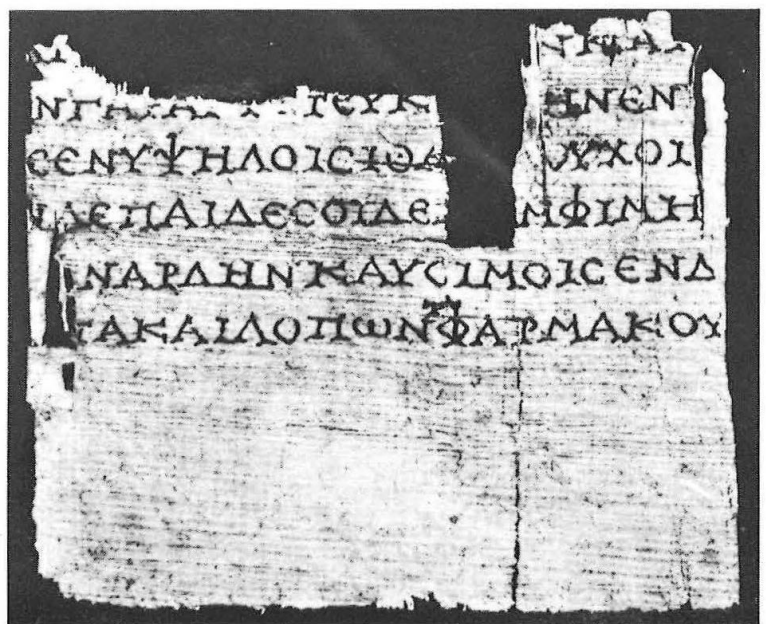 ΝΚΑΙ
ΤΕΥΚ ΗΝΕΝ
ϹΕΝΥΨΗΛΟΙϹΙΘΑ ΥΧΟΙ
ΔΕΠΑΙΔΕϹΟΙΔΕ ΜΦΙΜΗ
ΝΑΡΔΗΝΚΑΥϹΙΜΟΙϹΕΝΔ
ΤΑΚΑΙΛΟΠΩΝΦΑΡΜΑΚΟΥ